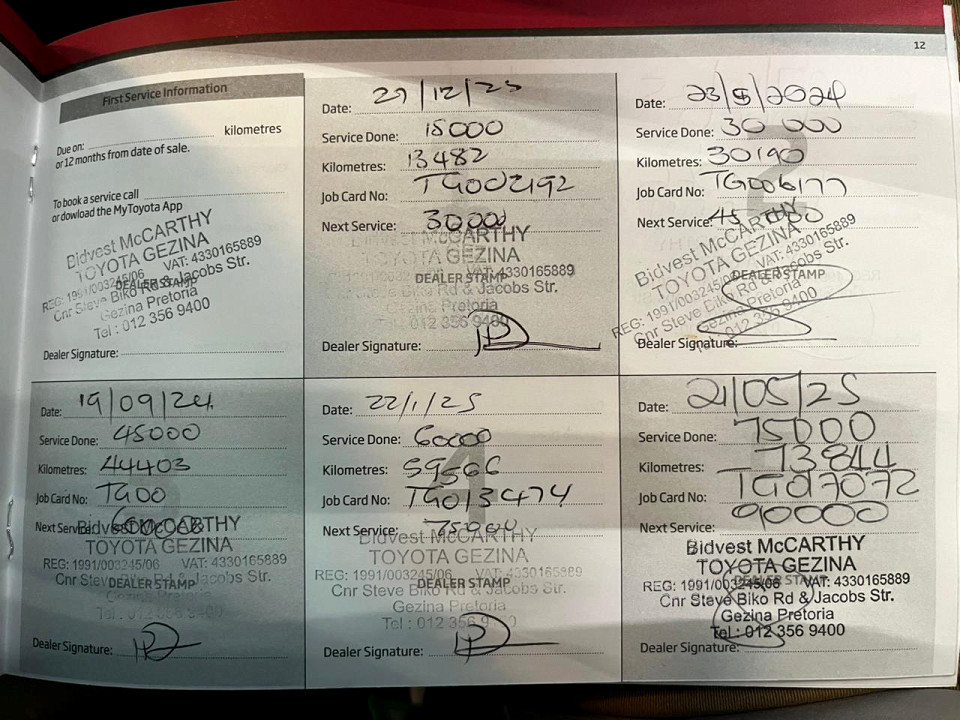 12
First Service Information
Due on: kilometres
or 12 months from date of sale.
To book a service call
or dowload the MyToyota App
Bidvest McCARTHY
TOYOTA GEZINA
REG: 1991/003245/06 VAT: 4330165889
DEALER STAMP
Cnr Steve Biko Rd & Jacobs Str.
Gezina Pretoria
Tel : 012 356 9400
Dealer Signature:
Date: 29/12/23
Service Done: 15000
Kilometres: 13482
Job Card No: TG002192
Next Service: 30000
McCARTHY
TOYOTA GEZINA
VAT: 4330165889
DEALER STAMP
Biko Rd & Jacobs Str.
Gezina Pretoria
Tel : 012 356 9400
Dealer Signature:
Date: 23/5/2024
Service Done: 30 000
Kilometres: 30190
Job Card No: TG006177
Next Service: 45 000
Bidvest McCARTHY
TOYOTA GEZINA
REG: 1991/003245/06 VAT: 4330165889
DEALER STAMP
Cnr Steve Biko Rd & Jacobs Str.
Gezina Pretoria
Tel : 012 356 9400
Dealer Signature:
Date: 19/09/24
Service Done: 45000
Kilometres: 44403
Job Card No: TG00
Next Service: 60000
Bidvest McCARTHY
TOYOTA GEZINA
REG: 1991/003245/06 VAT: 4330165889
Cnr Steve Biko Rd & Jacobs Str.
DEALER STAMP
Gezina Pretoria
Tel : 012 356 9400
Dealer Signature:
Date: 22/1/25
Service Done: 60000
Kilometres: 59566
Job Card No: TG013474
Next Service: 75000
Bidvest McCARTHY
TOYOTA GEZINA
REG: 1991/003245/06 VAT: 4330165889
DEALER STAMP
Cnr Steve Biko Rd & Jacobs Str.
Gezina Pretoria
Tel : 012 356 9400
Dealer Signature:
Date: 21/05/25
Service Done: 75000
Kilometres: 73844
Job Card No: TG017072
Next Service: 90000
Bidvest McCARTHY
TOYOTA GEZINA
DEALER STAMP
REG: 1991/003245/06 VAT: 4330165889
Cnr Steve Biko Rd & Jacobs Str.
Gezina Pretoria
Tel : 012 356 9400
Dealer Signature: